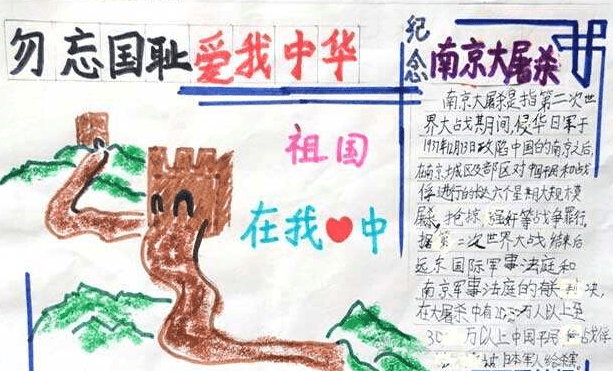 勿忘国耻爱我中华
祖国
在我中
纪念南京大屠杀
南京大屠杀是指第二次世
界大战期间,侵华日军于
1937年12月13日攻陷中国的南京之后,
在南京城区及郊区对平民和战
俘进行的长达六个星期大规模
屠杀、抢掠、强奸等战争罪行。
据第二次世界大战结束后
远东国际军事法庭和
南京军事法庭的有关判决,
在大屠杀中有20万人以上至
30万以上中国平民和战俘
被日本军人